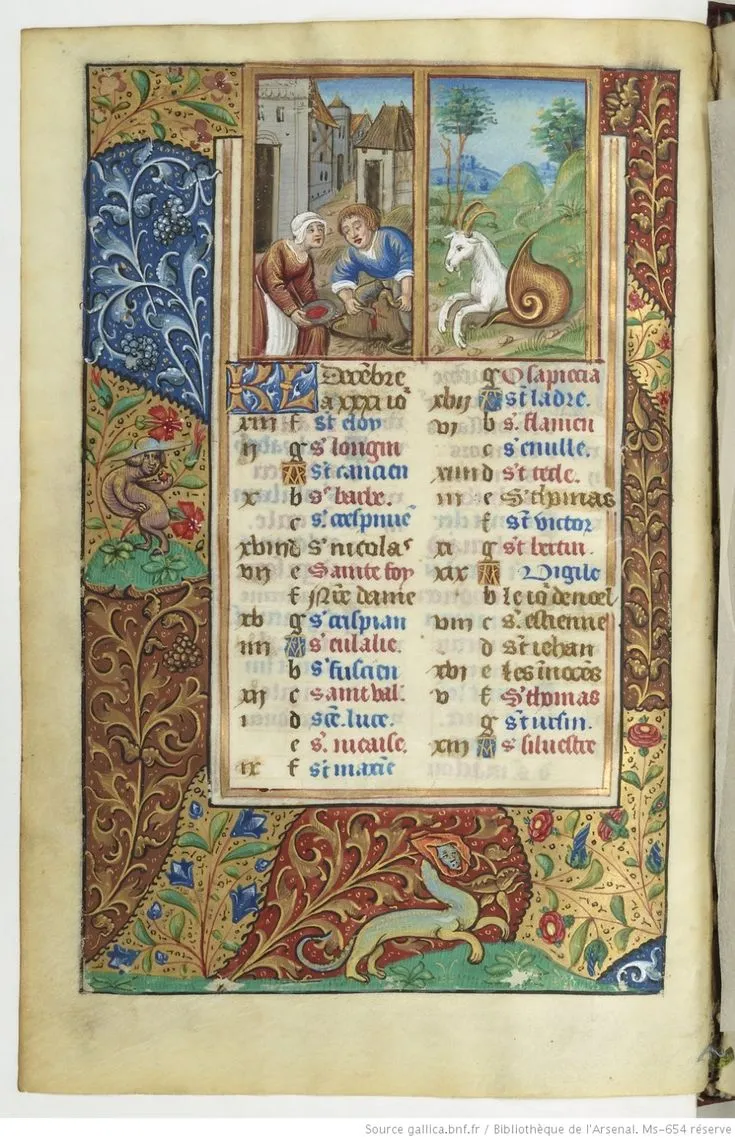 KL Decēbre
a xxxi io^r
xiii f st eloy
ij g s^r longin
A st cancien
x b s^e barbe.
c s^t crespiniē
xviii d s^r nicolas
vii e Sainte foy
f Nr̄e dame
xb g s^t crispian
iiii A s^e eulalie.
b s^t fuscien
xii c saint val.
i d sce. luce.
e s. nicaise.
ix f st maxiē
g O sapiēcia
xvii A st ladre.
vi b s. flamen
c s^e
xiiii d s^te tecle.
iii e S^t thomas
f st victor
xi g s^t bertin.
xix A Vigile
b le io^r de noel
viii c s. estienne
d st iehan
xvi e les inocēs
v f S^t thomas
g st ursin.
xiii A s siluestre
Source gallica.bnf.fr / Bibliothèque de l'Arsenal. Ms-654 réserve